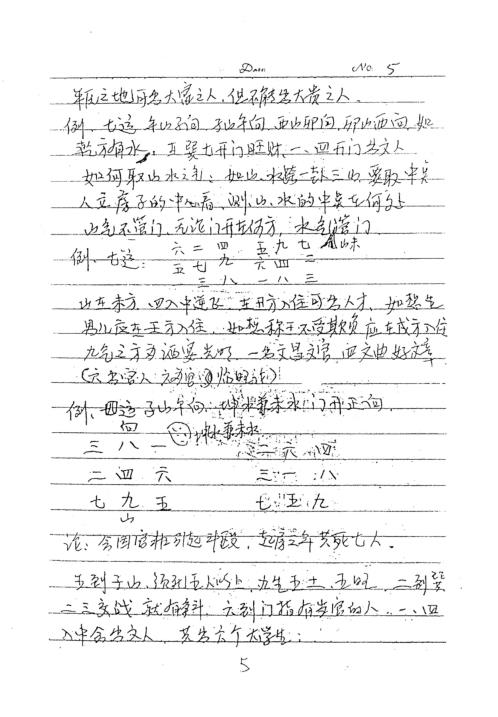 Date No. 5
之地可出大富之人,但不能出大贵之人.
例、七运 午山子向.子山午向.酉山卯向.卯山酉向.如
乾方有水,在巽七开门旺财、一、四开门出文人
如何取山水之气:如山、水 一卦三山,要取中
人立房子的中心看,则山、水的中 在何
山气不管门,无论门开在何方,水气管门.
例、七运: 六二四 五九七
五七九 六四二
三八 一八三
山在未方,四入中逆飞,在丑方入住可出人才,如想生
男儿应在壬方入住. 如想 不受欺负应在戌方入住
九气之方为酒宴 一名文昌文官,四文曲好文章
例、四运子山午向. 坤水兼未水门开正向.
向 坤水兼未水
三 八 一 二 六 四
二 四 六 三 一 八
七 九 五 七 五 九
山
论: 引起斗殴,起房之年共死七人.
五到子山,须死五人以上,九生五土、五旺. 二到
二三交战就有 六到门指有当官的人.一、四
入中宫出文人 共出六个大学生:
5